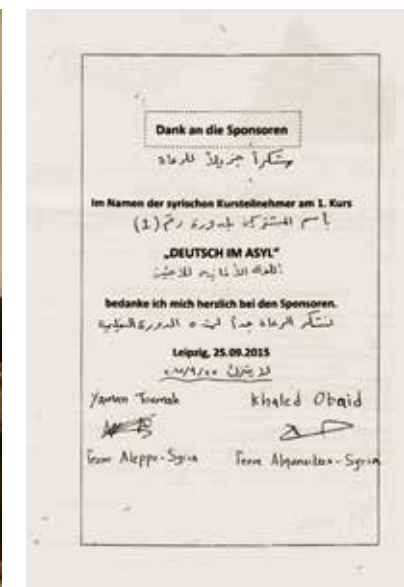 Dank an die Sponsoren
شكراً جزيلاً للرعاة
Im Namen der syrischen Kursteilnehmer am 1. Kurs
باسم المشتركين بدورة رقم (1)
„DEUTSCH IM ASYL"
اللغة الألمانية للاجئين
bedanke ich mich herzlich bei den Sponsoren.
نشكر الرعاة جداً الدورة
Leipzig, 25.09.2015
لايبزيغ
Yamen Khaled Obaid
From Aleppo-Syria From Alquneitra-Syria